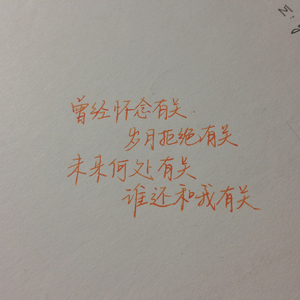 曾经怀念有关
岁月拒绝有关
未来何处有关
谁还和我有关